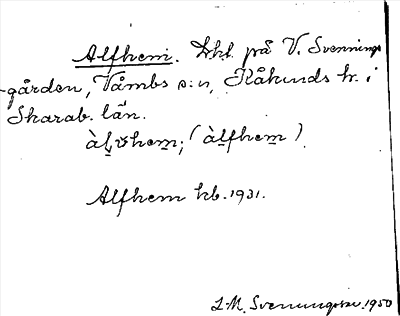 Alfhem. lht. på V. Svennings
-gården, Våmbs s:n, Kåkinds hr. i
Skarab. län.
àl̬vhem; (àlfhem)
Alfhem kb. 1931.
L-M. Svenungsson. 1950